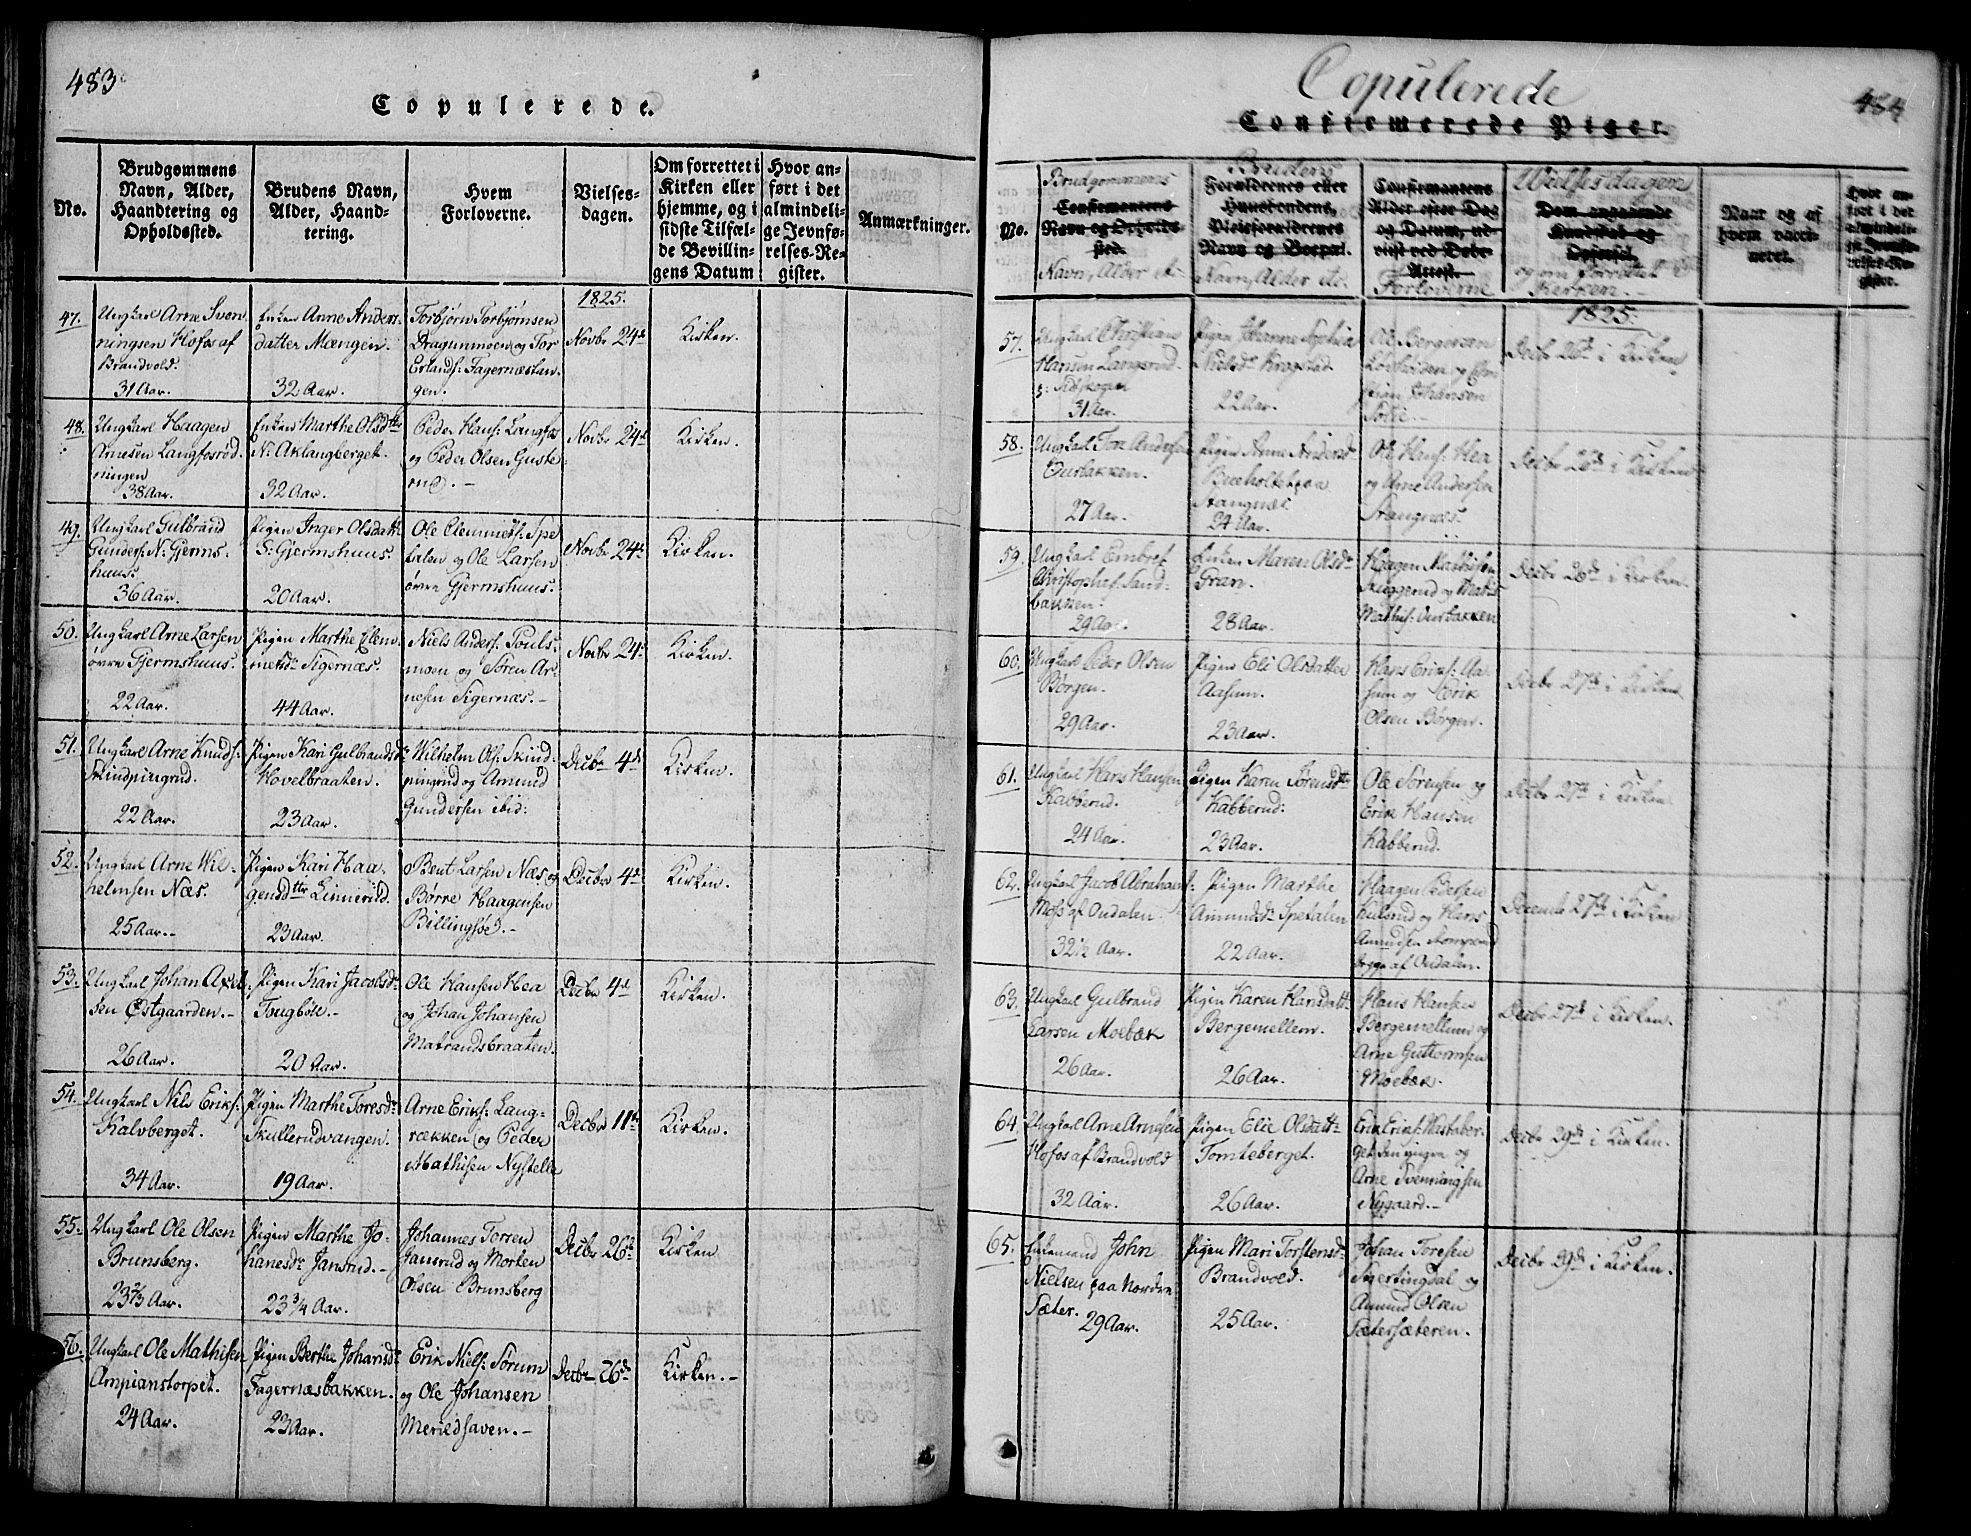 483
Copulerede.
No.
Brudgommens
Navn, Alder,
Haandtering og
Opholdssted.
Brudens Navn,
Alder, Haand-
tering.
Hvem
Forloverne.
Vielses-
dagen.
Om forrettet i
Kirken eller
hjemme, og i
sidste Tilfæl-
de Bevillin-
gens Datum
Hvor an-
ført i det
almindeli-
ge Jevnfø-
relses-Re-
gister.
Anmærkninger.
1825.
47.
Ungkarl Arne Sven
ningsen Hofos af
Brandvold.
31 Aar.
Enken Anne Anders
datter Mængen.
32 Aar.
Torbjørn Torbjørnsen
Dragunmoen og Tor
Erlands: Fagernæstan-
gen.
Novbr 24de
Kirken.
48.
Ungkarl Haagen
Arnesen Langfosrød-
ningen
38 Aar.
Enken Marthe Olsdttr
N: Aklangberget.
32 Aar.
Peder Hans: Langfos
og Peder Olsen Guste-
rud. -
Novbr 24de
Kirken.
49.
Ungkarl Gulbrand
Gunders: N: Gjerms-
huus.
36 Aar.
Pigen Inger Olsdatt:
S: Gjermshuus.
20 Aar.
Ole Clemmets: Spe
talen og Ole Larsen
øvre Gjermshuus.
Novbr 24de
Kirken.
50.
Ungkarl Arne Larsen
øvre Gjermshuus.
22 Aar.
Pigen Marthe Clem
metsdr Sigernæs.
44 Aar.
Niels Anders: Pouls-
moen og Søren Ar-
nesen Sigernæs. -
Novbr 24de
Kirken.
51.
Ungkarl Arne Knuds:
Skindpungrud.
22 Aar.
Pigen Kari Gulbrandsdr
Hovelbraaten.
23 Aar.
Wilhelm Ols: Skind-
pungrud og Amund
Gundersen ibid:
Decbr 4de
Kirken.
52.
Ungkarl Arne Wil-
helmsen Næs.
25 Aar. -
Pigen Kari Haa-
gensdttr Linnerud.
23 Aar.
Bent Larsen Næs og
Børre Haagensen
Billingsøe. -
Decbr 4de
Kirken.
53.
Ungkarl Johan Axel-
sen Østgaarden. -
26 Aar.
Pigen Kari Jacobsdr
Tougbøle. -
20 Aar.
Ole Hansen Hea
og Johan Johansen
Matrandsbraaten.
Decbr 4de
Kirken.
54.
Ungkarl Nils Eriks:
Kalvberget.
34 Aar.
Pigen Marthe Toresdr
Skullerudvangen.
19 Aar.
Arne Eriks: Lang-
rækken og Peder
Mathisen Nystelle
Decbr 11te
Kirken.
55.
Ungkarl Ole Olsen
Brunsberg.
23 2/3 Aar.
Pigen Marthe Jo-
hanesdr Jansrud. -
23 3/4 Aar.
Johannes Torren
Jansrud og Morten
Olsen Brunsberg
Decbr 26de
Kirken
56.
Ungkarl Ole Mathisen
Ampianstorpet.
24 Aar.
Pigen Berthe Johansdr
Fagernæsbakken.
23 Aar.
Erik Niels: Sørum
og Ole Johansen
Merieds­aven. -
Decbr 26de
Kirken. -
Copulerede
Confirmerede Piger.
484
No.
Brudgommens
Confirmantens
Navn og Opholds-
sted.
Navn, Alder etc.
Brudens
Forældrenes eller
Huusbondens,
Pleieforældrenes
Navn og Bopæl.
Navn, Alder etc.
Confirmantens
Alder efter Dag
og Datum,
Attest.
Forloverne
Vielsesdagen
Dom angaaende
Kundskab og
Opførsel.
og om forrettet i
Kirken.
Naar og af
hvem vacci-
neret.
Hvor an-
ført i det
almindelige Jevnfø-
relses-Re-
gister.
1825.
57.
Ungkarl Christian
Hansen Langerud
31 Aar.
Pigen Johanne Sophia
Nielsdr Krogstad
22 Aar.
Ole Bergersen
Johansen
Decbr 26de i Kirken
58.
Ungkarl Tore Andersen
Ousbakken.
27 Aar.
Pigen Anne Andersdr
Bueholtet paa
Stangnæs
24 Aar.
Ole Hans: Hea
og Arne Andersen
Stangnæs.
Decbr 26de i Kirken
59.
Ungkarl Embret
Christophers: Sand-
bakken.
29 Aar.
Enken Maren Olsdr
Gran.
28 Aar.
Haagen Mathisen
Skuggerud og Mathis
Mathis: Ousbakken
Decbr 26de i Kirken.
60.
Ungkarl Peder Olsen
Børgen.
29 Aar.
Pigen Eli Olsdatter
Aasum.
23 Aar.
Hans Eriks: Aa-
sum og Erik
Olsen Børgen.
Decbr 27de i Kirken
61.
Ungkarl Hans Hansen
Kabberud.
24 Aar.
Pigen Karen Sørensdttr
Kabberud:
23 Aar.
Ole Sørensen og
Erik Hansen
Kabberud.
Decbr 27de i Kirken.
62.
Ungkarl Jacob Abrahams:
Moss af Oudalen
32 1/2 Aar.
Pigen Marthe
Amundsdr Spetalen
22 Aar.
Haagen Pedersen
Kulsrud og Hans
Amundsen
begge af Oudalen.
Decembr 27de i Kirken
63.
Ungkarl Gulbrand
Larsen Moebæk
26 Aar.
Pigen Karen Hansdatt:
Bergemellem.
26 Aar.
Hans Hansen
Bergemellum og
Arne Guttormsen
Moebæk.
Decbr 27de i Kirken.
64.
Ungkarl Arne Arnesen
Hofos af Brandvold
32 Aar.
Pigen Elie Olsdatt:
Tomteberget.
26 Aar.
Erik Eriks: Mastaber-
get den yngre og
Arne Svenningsen
Nygaard. -
Decbr 29de i Kirken.
65.
Enkemand John
Nielsen paa Nordre
Sæter.
29 Aar.
Pigen Mari Torstensdr
Brandvold.
25 Aar.
Johan Toresen
Skertingdal og
Amund Olsen
Sætersæteren.
Decbr 29de i Kirken.